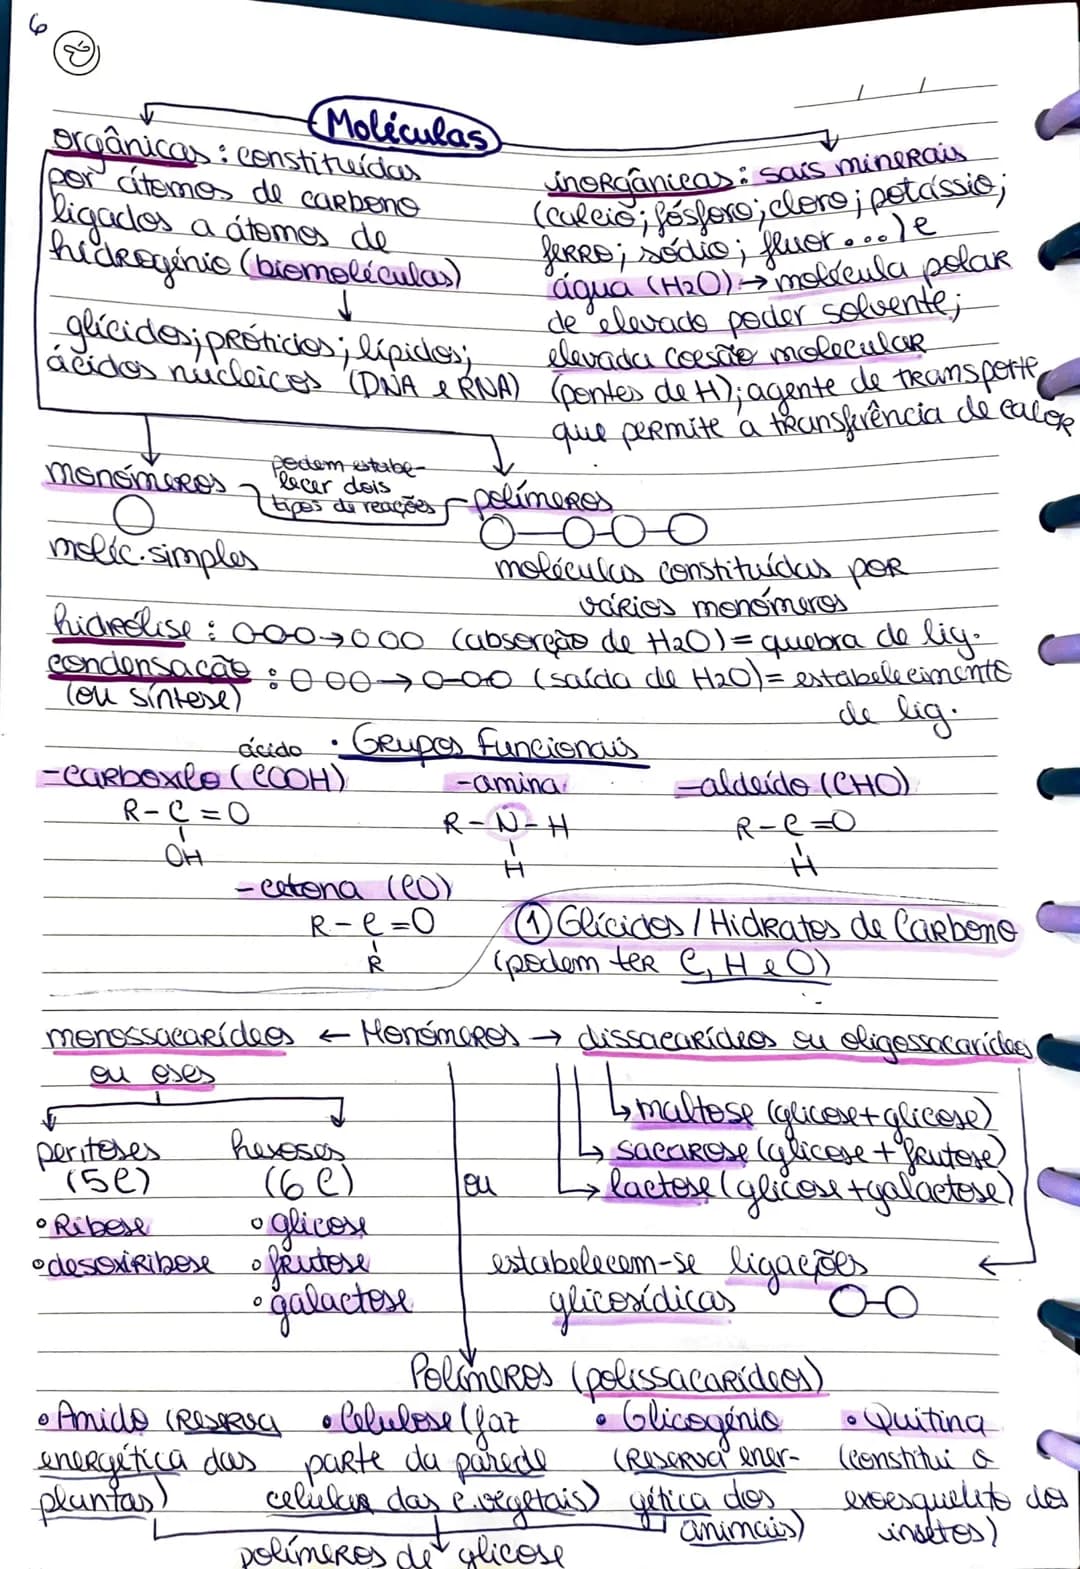 6
Moléculas
orgânicas: constituídas
por átomos de carbono
ligados a átomos de
hidrogénio (biomoléculas)
glícidos; prótidos; lípidos;
ácidos nucleicos (DNA e RNA)
inorgânicas: sais minerais
(cálcio; fósforo; cloro; potássio;
ferro; sódio; fluor...) e
água (H2O) → molécula polar
de elevado poder solvente;
elevada coesão molecular
(pontes de H); agente de transporte
que permite a transferência de calor
monómeros
moléc. simples
podem estabe-
lecer dois
tipos de reações
polímeros
moléculas constituídas por
vários monómeros
hidrólise: O-O-O→O O O (absorção de H2O) = quebra de lig.
condensação: O O O → O-O-O (saída de H2O) = estabelecimento
(ou síntese) de lig.
• Grupos Funcionais
ácido
-carboxilo (COOH) -amina -aldeído (CHO)
R-C=O R-N-H R-C=O
OH H H
-cetona (CO)
R-C=O
R
① Glícidos / Hidratos de Carbono
(podem ter C, H e O)
monossacarídeos ← Monómeros → dissacarídeos ou oligossacarídeos
ou oses
pentoses hexoses
(5C) (6C)
• Ribose • glicose
• desoxiribose • frutose
• galactose
ou
↳ maltose (glicose+glicose)
↳ sacarose (glicose + frutose)
↳ lactose (glicose + galactose)
estabelecem-se ligações
glicosídicas O-O
Polímeros (polissacarídeos)
• Amido (Reserva • Celulose (faz • Glicogénio • Quitina
energética das parte da parede (Reserva ener- (constitui o
plantas) celular das c. vegetais) gética dos exoesqueleto dos
animais) insetos)
polímeros de glicose